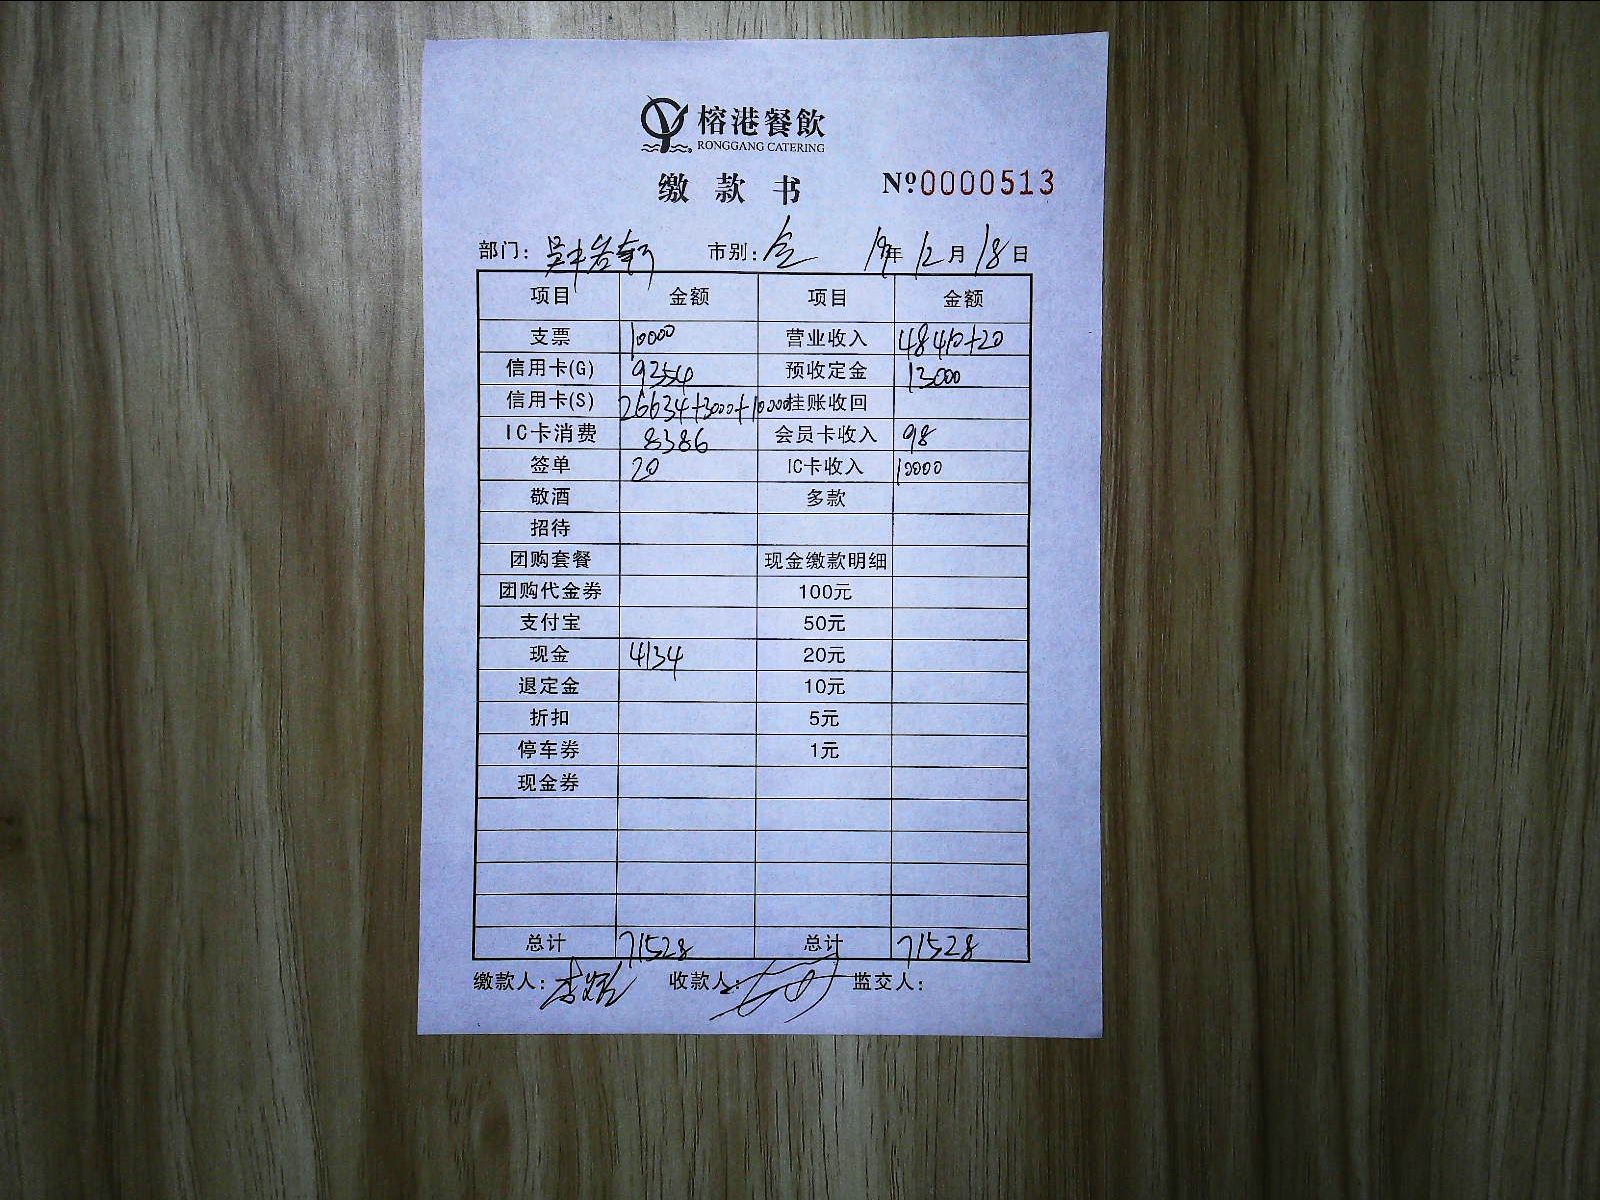 榕港餐飲
RONGGANG CATERING
缴款书 Nº0000513
部门: 市别:全 19年12月18日
项目 金额 项目 金额
支票 10000 营业收入 48410+20
信用卡(G) 9354 预收定金 13000
信用卡(S) 26634+3000+10000 挂账收回
IC卡消费 8386 会员卡收入 98
签单 20 IC卡收入 10000
敬酒 多款
招待
团购套餐 现金缴款明细
团购代金券 100元
支付宝 50元
现金 4134 20元
退定金 10元
折扣 5元
停车券 1元
现金券
总计 71528 总计 71528
缴款人: 收款人: 监交人: